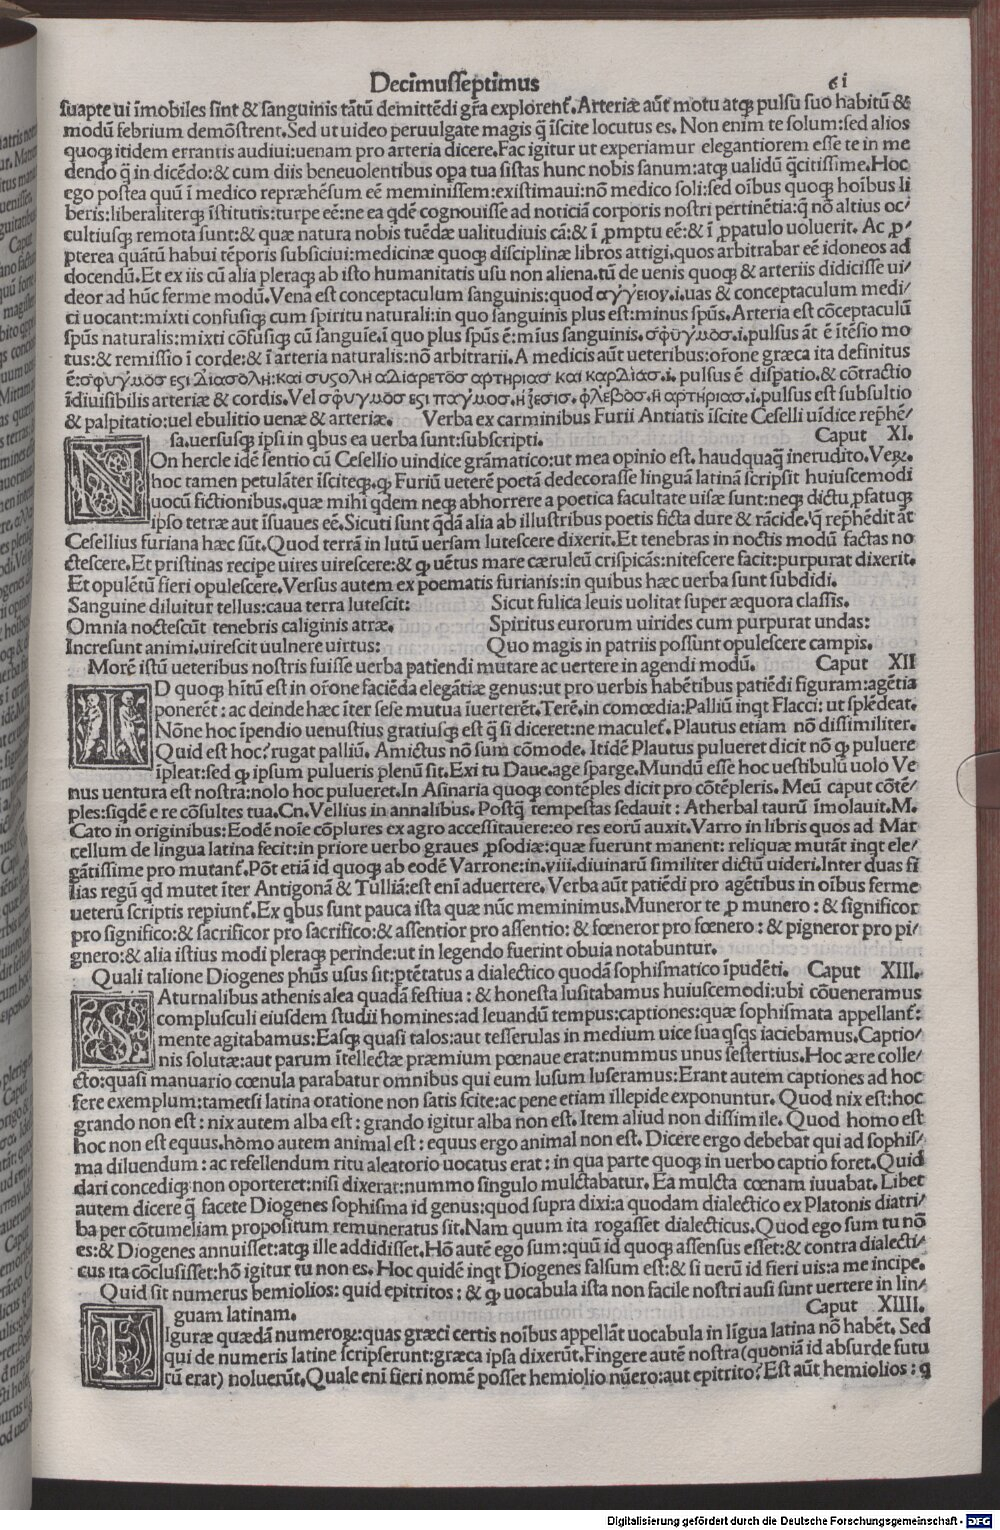 Decimusseptimus 61
suapte ui īmobiles sint & sanguinis tātū demittēdi gr̃a explorent̃. Arteriæ aũt motu atqꝫ pulsu suo habitū &
modū febrium demōstrent. Sed ut uideo peruulgate magis q̃ īscite locutus es. Non enim te solum: sed alios
quoqꝫ itidem errantis audiui: uenam pro arteria dicere. Fac igitur ut experiamur elegantiorem esse te in me
dendo q̃ in dicēdo: & cum diis beneuolentibus opa tua sistas hunc nobis sanum: atqꝫ ualidū q̃citissime. Hoc
ego postea quū ī medico repræhēsum eē meminissem: existimaui: nō medico soli: sed oībus quoqꝫ hoībus li
beris: liberaliterqꝫ īstitutis: turpe eē: ne ea qdē cognouisse ad noticiā corporis nostri pertinētia: q̃ nō altius oc/
cultiusqꝫ remota sunt: & quæ natura nobis tuēdæ ualitudiuis cā: & ī ꝓmptu eē: & ī ꝓpatulo uoluerit. Ac ꝓ/
pterea quātū habui tēporis subsiciui: medicinæ quoqꝫ disciplinæ libros attigi. quos arbitrabar eē idoneos ad
docendū. Et ex iis cū alia pleraqꝫ ab isto humanitatis usu non aliena. tū de uenis quoqꝫ & arteriis didicisse ui/
deor ad hūc ferme modū. Vena est conceptaculum sanguinis: quod αγγειον .i. uas & conceptaculum medi/
ci uocant: mixti confusiqꝫ cum spiritu naturali: in quo sanguinis plus est: minus spūs. Arteria est cōceptaculū
spūs naturalis: mixti cōfusiqꝫ cū sanguīe. ī quo plus spūs ē: mīus sanguinis. σφυγμοσ .i. pulsus āt ē ītēsio mo
tus: & remissio ī corde: & ī arteria naturalis: nō arbitrarii. A medicis aũt ueteribus: or̃one græca ita definitus
ē: σφυγμοσ εςι διαςολη: και συςολη αδιαρετοσ αρτηριασ και καρδιασ .i. pulsus ē dispatio. & cōtractio
īdiuisibilis arteriæ & cordis. Vel σφυγμοσ εςι παγμοσ. η ζεσισ. φλεβοσ. η αρτηριασ .i. pulsus est subsultio
& palpitatio: uel ebulitio uenæ & arteriæ. Verba ex carminibus Furii Antiatis īscite Ceselli uīdice rep̃hē/
sa. uersusqꝫ ipsi in qbus ea uerba sunt: subscripti. Caput XI.
NOn hercle idē sentio cū Cesellio uindice grāmatico: ut mea opinio est. haudquaqꝫ inerudito. Veꝝ.
hoc tamen petulāter īsciteqꝫ. qꝫ Furiū ueterē poetā dedecorasse linguā latinā scripsit huiuscemodi
uocū fictionibus. quæ mihi qdem neqꝫ abhorrere a poetica facultate uisæ sunt: neqꝫ dictu ꝓfatuqꝫ
ipso tetræ aut īsuaues eē. Sicuti sunt qdā alia ab illustribus poetis ficta dure & rācide. q̃ rep̃hēdit āt
Cesellius furiana hæc sūt. Quod terrā in lutū uersam lutescere dixerit. Et tenebras in noctis modū factas no
ctescere. Et pristinas recipe uires uirescere: & qꝫ uētus mare cæruleū crispicās: nitescere facit: purpurat dixerit.
Et opulētū fieri opulescere. Versus autem ex poematis furianis: in quibus hæc uerba sunt subdidi.
Sanguine diluitur tellus: caua terra lutescit: Sicut fulica leuis uolitat super æquora classis.
Omnia noctescūt tenebris caliginis atræ. Spiritus eurorum uirides cum purpurat undas:
Incresunt animi. uirescit uulnere uirtus: Quo magis in patriis possunt opulescere campis.
Morē istū ueteribus nostris fuisse uerba patiendi mutare ac uertere in agendi modū. Caput XII
ID quoqꝫ hītū est in or̃one faciēda elegātiæ genus: ut pro uerbis habētibus patiēdi figuram: agētia
ponerēt: ac deinde hæc īter sese mutua īuerterēt. Terē. in comœdia: Palliū inqt Flacci: ut splēdeat.
Nōne hoc īpendio uenustius gratiusqꝫ est q̃ si diceret: ne maculet̃. Plautus etiam nō dissimiliter.
Quid est hoc? rugat palliū. Amictus nō sum cōmode. Itidē Plautus pulueret dicit nō qꝫ puluere
ipleat: sed qꝫ ipsum pulueris plenū sit. Exi tu Daue. age sparge. Mundū esse hoc uestibulū uolo Ve
nus uentura est nostra: nolo hoc pulueret. In Asinaria quoqꝫ contēples dicit pro cōtēpleris. Meū caput cōtē/
ples: siqdē e re cōsultes tua. Cn. Vellius in annalibus. Postq̃ tempestas sedauit: Atherbal taurū īmolauit. M.
Cato in originibus: Eodē noīe cōplures ex agro accessitauere: eo res eorū auxit. Varro in libris quos ad Mar
cellum de lingua latina fecit: in priore uerbo graues ꝓsodiæ: quæ fuerunt manent: reliquæ mutāt inqt ele/
gātissime pro mutant̃. Pōt etiā id quoqꝫ ab eodē Varrone: in. viii. diuinarū similiter dictū uideri. Inter duas fi
lias regū qd mutet īter Antigonā & Tulliā: est enī aduertere. Verba aũt patiēdi pro agētibus in oībus ferme
ueterū scriptis repiunt̃. Ex qbus sunt pauca ista quæ nūc meminimus. Muneror te ꝓ munero: & significor
pro significo: & sacrificor pro sacrifico: & assentior pro assentio: & fœneror pro fœnero: & pigneror pro pi/
gnero: & alia istius modi pleraqꝫ perinde: ut in legendo fuerint obuia notabuntur.
Quali talione Diogenes phūs usus sit: ptētatus a dialectico quodā sophismatico īpudēti. Caput XIII.
SAturnalibus athenis alea quadā festiua: & honesta lusitabamus huiuscemodi: ubi cōueneramus
complusculi eiusdem studii homines: ad leuandū tempus: captiones: quæ sophismata appellant̃:
mente agitabamus: Easqꝫ quasi talos: aut tesserulas in medium uice sua qsqs iaciebamus. Captio/
nis solutæ: aut parum ītellectæ præmium pœnaue erat: nummus unus sestertius. Hoc ære colle/
cto: quasi manuario cœnula parabatur omnibus qui eum lusum luseramus: Erant autem captiones ad hoc
fere exemplum: tametsi latina oratione non satis scite: ac pene etiam illepide exponuntur. Quod nix est: hoc
grando non est: nix autem alba est: grando igitur alba non est. Item aliud non dissimile. Quod homo est
hoc non est equus. homo autem animal est: equus ergo animal non est. Dicere ergo debebat qui ad sophis/
ma diluendum: ac refellendum ritu aleatorio uocatus erat: in qua parte quoqꝫ in uerbo captio foret. Quid
dari concediqꝫ non oporteret: nisi dixerat: nummo singulo mulctabatur. Ea mulcta cœnam iuuabat. Libet
autem dicere q̃ facete Diogenes sophisma id genus: quod supra dixi: a quodam dialectico ex Platonis diatri/
ba per cōtumeliam propositum remuneratus sit. Nam quum ita rogasset dialecticus. Quod ego sum tu nō
es: & Diogenes annuisset: atqꝫ ille addidisset. Hō autē ego sum: quū id quoqꝫ assensus esset: & contra dialecti/
cus ita cōclusisset: hō igitur tu non es. Hoc quidē inqt Diogenes falsum est: & si uerū id fieri uis: a me incipe.
Quid sit numerus bemiolios: quid epitritos: & qꝫ uocabula ista non facile nostri ausi sunt uertere in lin/
guam latinam. Caput XIIII.
FIguræ quædā numeroꝝ: quas græci certis noībus appellāt uocabula in līgua latina nō habēt. Sed
qui de numeris latine scripserunt: græca ipsa dixerūt. Fingere autē nostra (quoniā id absurde futu
rū erat) noluerūt. Quale enī fieri nomē posset hemiolio nūero: aut epitrito? Est aũt hemiolios: q
Digitalisierung gefördert durch die Deutsche Forschungsgemeinschaft - DFG